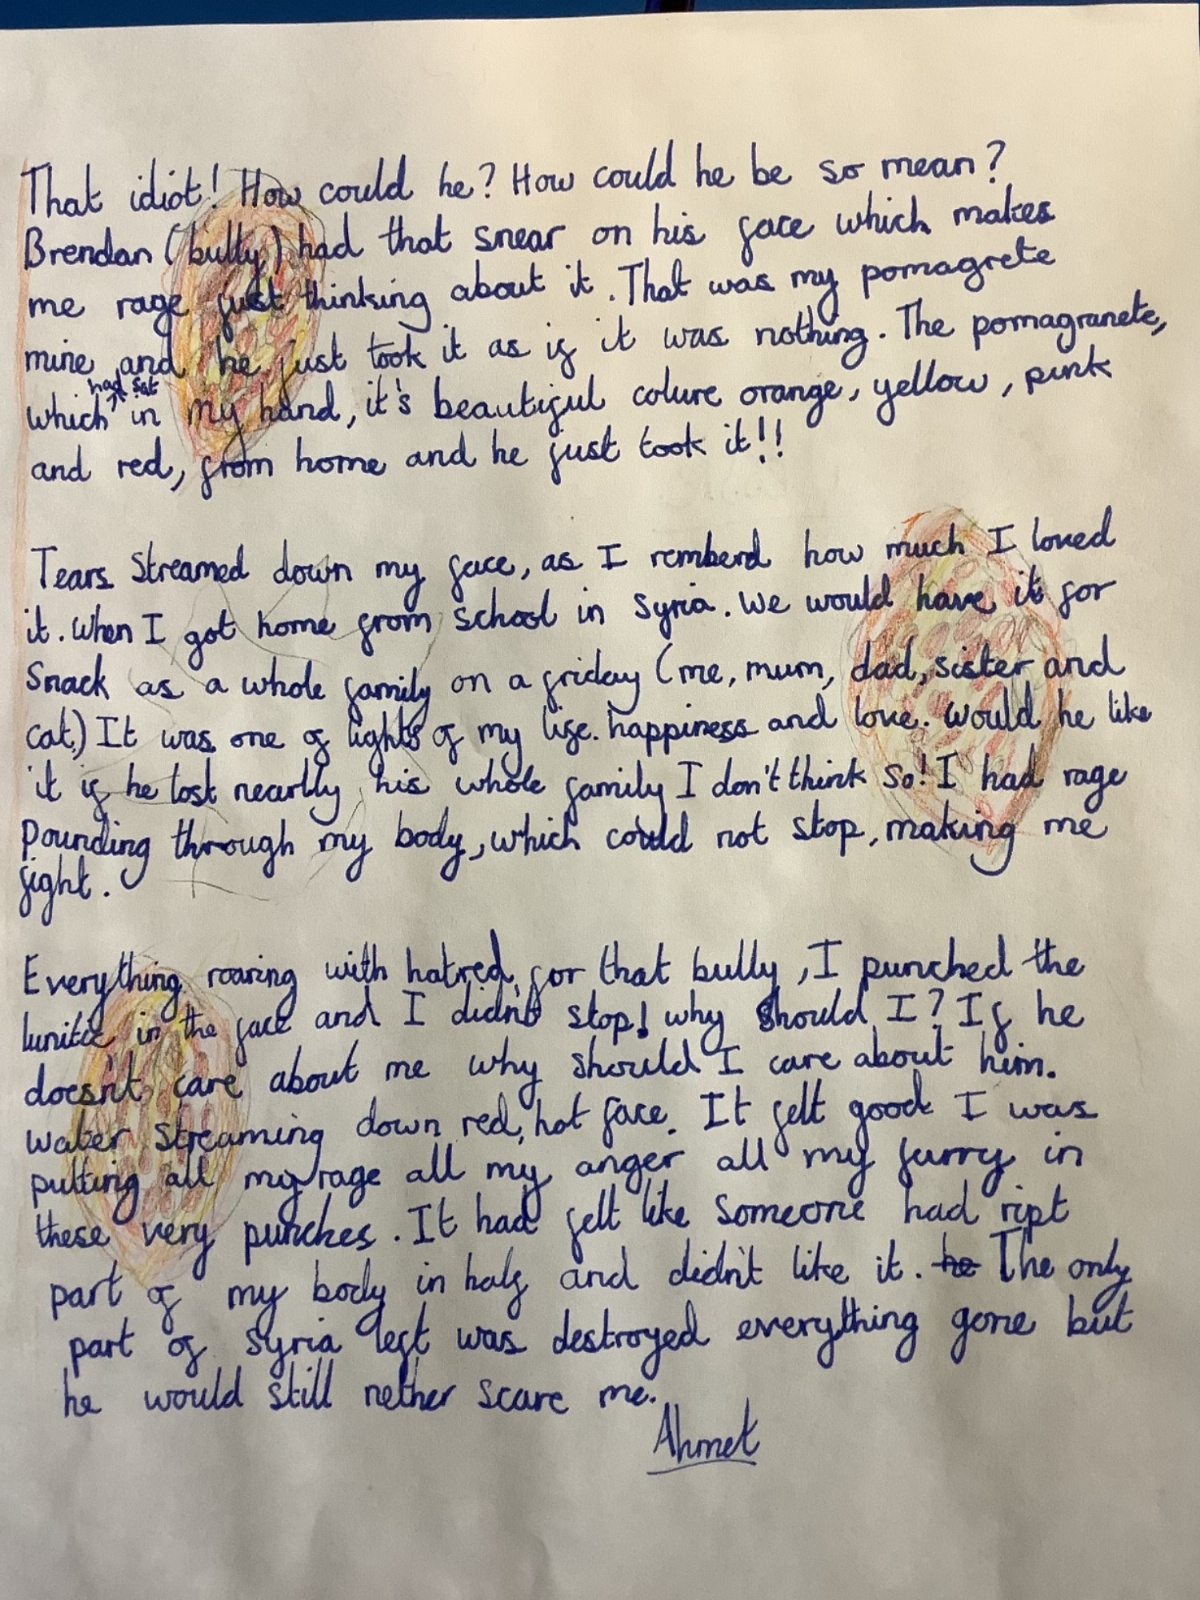 That idiot! How could he? How could he be so mean?
Brendan (bully) had that snear on his face which makes
me rage just thinking about it. That was my pomagrete
mine and he just took it as if it was nothing. The pomagranete,
which had sat in my hand, it's beautiful colure orange, yellow, pink
and red, from home and he just took it!!
Tears streamed down my face, as I remberd how much I loved
it. When I got home from school in Syria. We would have it for
Snack as a whole family on a friday (me, mum, dad, sister and
cat.) It was one of lights of my life. happiness and love. Would he like
it if he lost nearlly his whole family I don't think so! I had rage
pounding through my body, which could not stop, making me
fight.
Everything roaring with hatred, for that bully, I punched the
lunitic in the face and I didn't stop! why should I? If he
doesn't care about me why should I care about him.
water streaming down red, hot face. It felt good I was
putting all my rage all my anger all my furry in
these very punches. It had felt like someone had ript
part of my body in half and didn't like it. he The only
part of Syria left was destroyed everything gone but
he would still nether scare me.
Ahmet